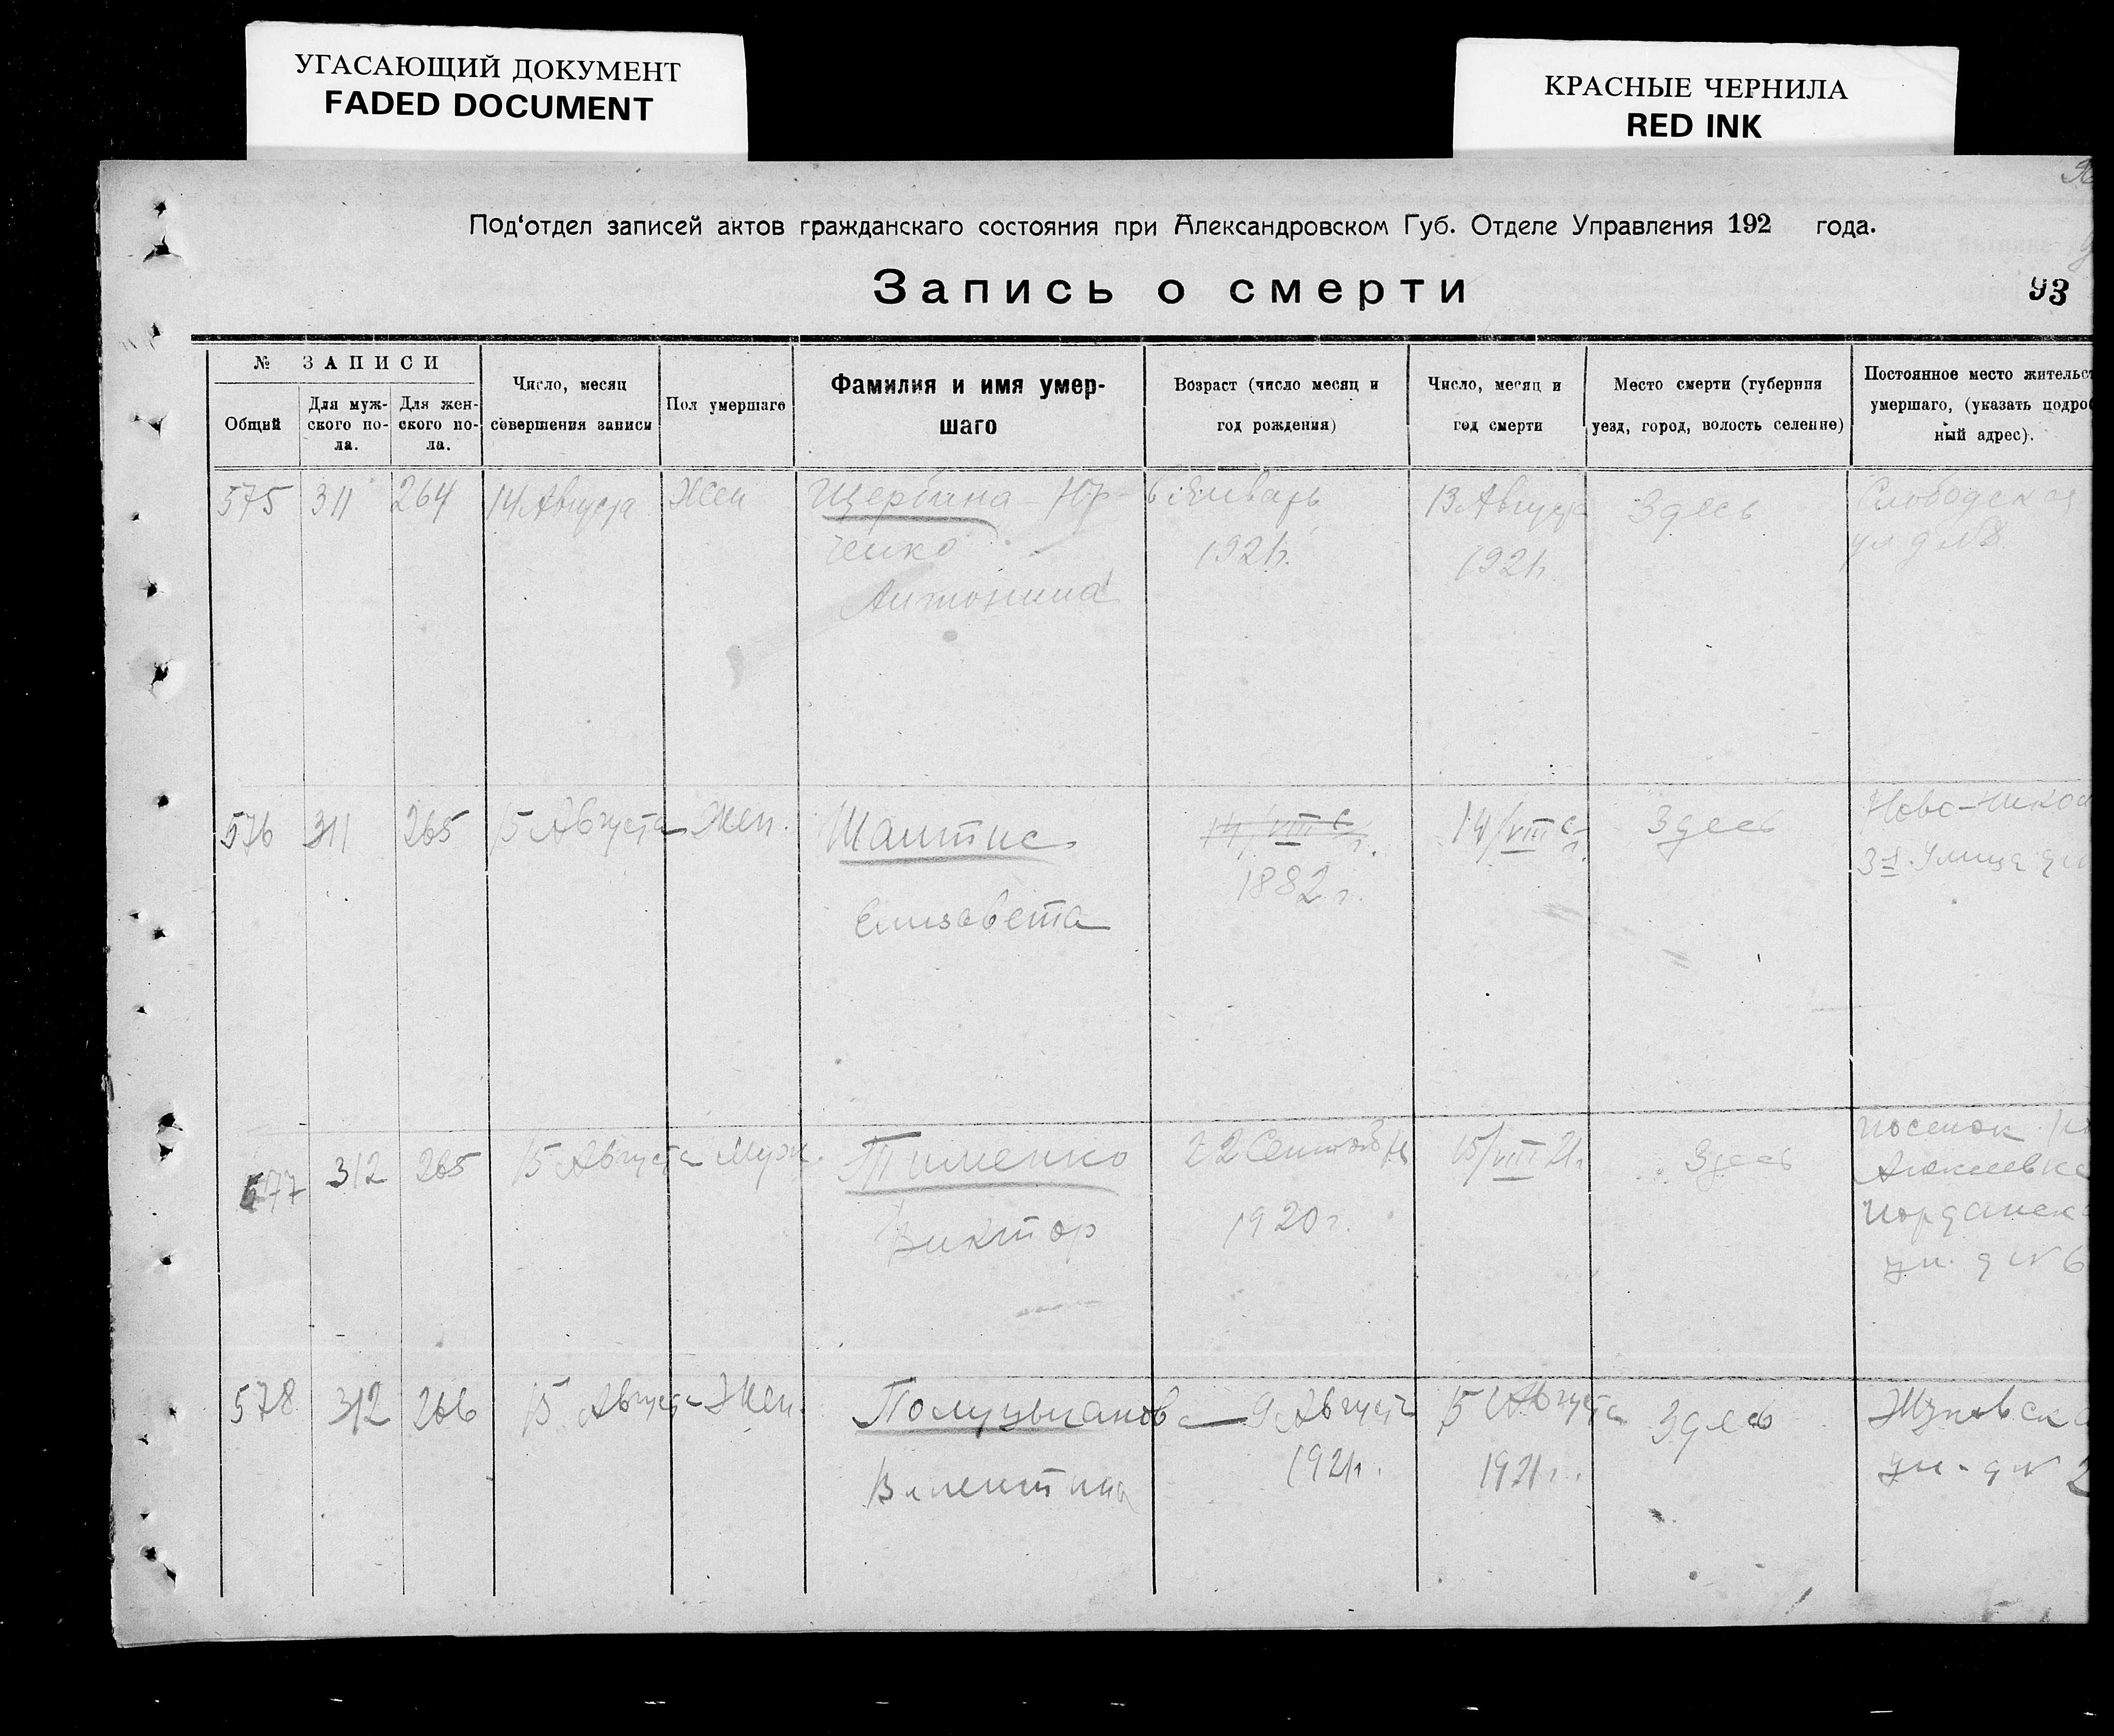 УГАСАЮЩИЙ ДОКУМЕНТ
FADED DOCUMENT
КРАСНЫЕ ЧЕРНИЛА
RED INK
Под‘отдел записей актов гражданскаго состояния при Александровском Губ. Отделе Управления 192 года.
Запись о смерти
93
№ ЗАПИСИ
Общий
Для муж-
ского по-
ла.
Для жен-
ского по-
ла.
Число, месяц
совершения записи
Пол умершаго
Фамилия и имя умер-
шаго
Возраст (число месяц и
год рождения)
Число, месяц и
год смерти
Место смерти (губерния
уезд, город, волость селение)
Постоянное место жительст
умершаго, (указать подроб
ный адрес).
575 311 264 14 Августа Жен Щербина - Юр- 6 Январь 13 Августа Здесь Слободская
ченко 1921г. 1921г. ул д №8
Антонина
576 311 265 15 Августа Жен. Шантис 14/VIII с/г. 14/VIII с/г. Здесь Ново-Никол
1882 г. 3я Улица д
Елизавета
577 312 265 15 Августа Муж. Тименко 22 Сентябр 15/VIII 21г Здесь поселок
Виктор 1920 г. ул. д № 6
578 312 266 15 Августа Жен. Полуцыганова 9 Августа 15 Августа Здесь Жуковска
Валентина 1921г. 1921г. ул. д № 2